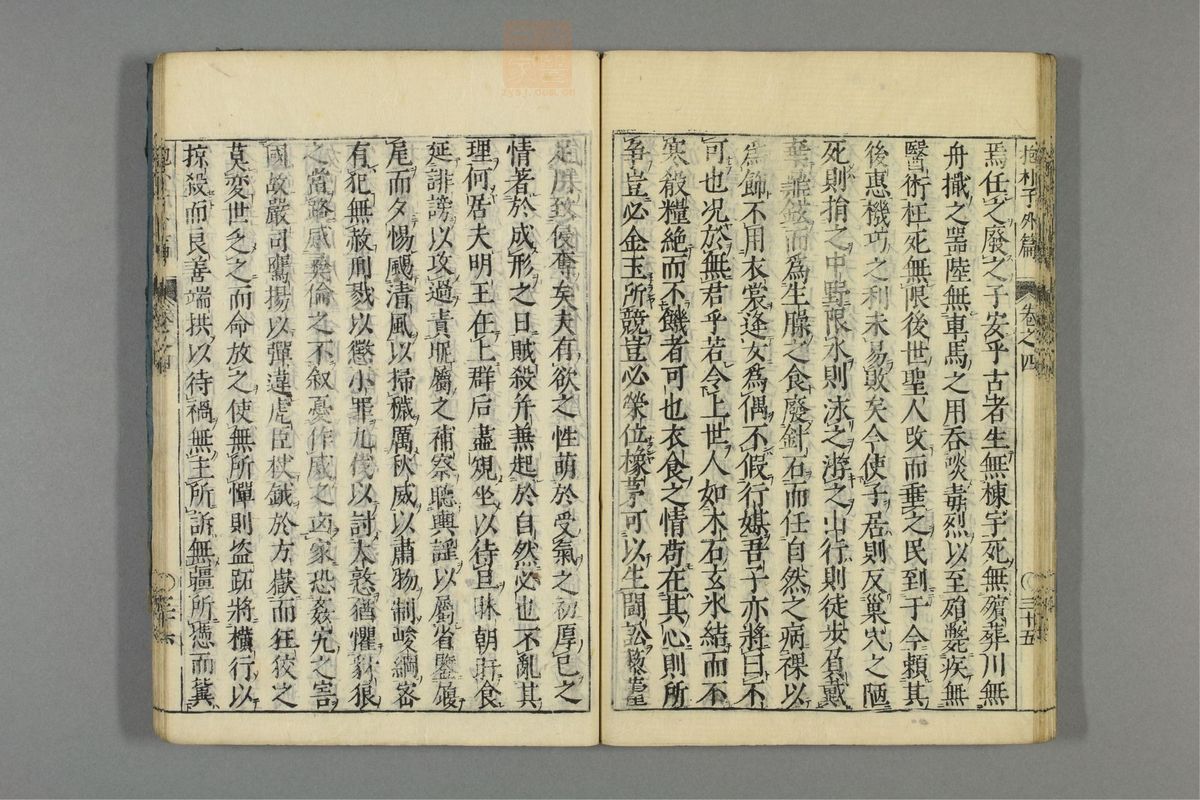 抱朴子外篇 卷之四 三十五
焉任之廢之子安乎古者生無棟宇死無殯葬川無
舟檝之噐陸無車馬之用吞啖毒烈以至殞斃疾無
醫術枉死無限後世聖人改而垂之民到于今賴其
後惠機巧之利未易敗矣今使子居則反巢穴之陋
死則捐之中野限水則泳之游之山行則徒步負戴
棄鼎鉉而爲生臊之食廢針石而任自然之病裸以
爲飾不用衣裳逢女爲偶不假行媒吾子亦將曰不
可也况於無君乎若令上世人如木石玄氷結而不
寒殺糧絶而不饑者可也衣食之情苟在其心則所
爭豈必金玉所競豈必榮位橡茅可以生鬪訟藜藿
足用致侵奪矣夫有欲之性萌於受氣之初厚已之
情著於成形之日賊殺并兼起於自然必也不亂其
理何居夫明王在上群后盡規坐以待旦昧朝旰食
延誹謗以攻過責昵屬之補察聽輿謡以屬省鑒履
尾而夕惕颺清風以掃穢厲秋威以肅物制峻綱密
有犯無赦刑戮以懲小罪九伐以討大憝猶懼豺狼
之當路感彝倫之不叙憂作威之凶家恐姦宄之害
國故嚴司鷹揚以彈違虎臣杖鉞於方嶽而狂狡之
莫変世乏之而命放之使無所憚則盗跖將横行以
掠殺而良善端拱以待禍無主所訴無疆所憑而冀
zysj.com.cn